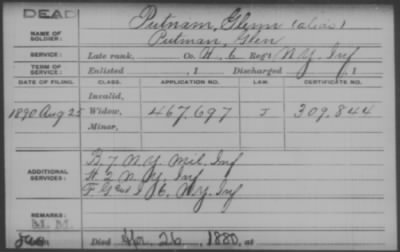 DEAD
NAME OF SOLDIER: Putnam, Glenn (alias)
Putman, Glen
SERVICE: Late rank, Co. H, 6 Reg't N.Y. Inf
TERM OF SERVICE: Enlisted , 1 Discharged , 1
DATE OF FILING. CLASS. APPLICATION NO. LAW. CERTIFICATE NO.
Invalid,
1890 Aug 25 Widow, 467,697 J 309,844
Minor,
ADDITIONAL SERVICES: B. 7 N.Y. Mil. Inf
H. 2 N.Y. Inf
F. 6 N.Y. Inf
REMARKS:
Died Apr. 26, 1880, at